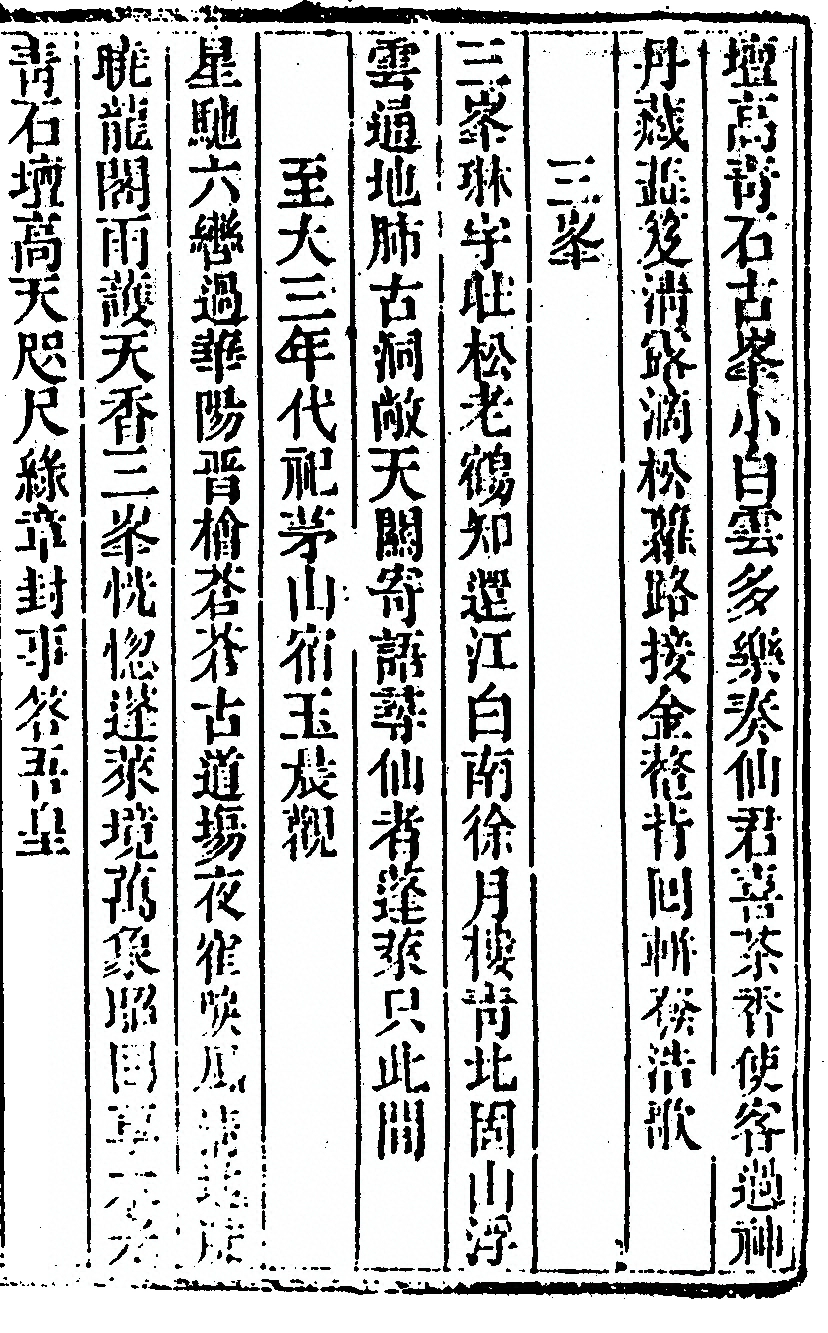 壇高青石古峯小白雲多樂奏仙君喜茶香使客過神
丹藏蓝笈清露滴松蘿路接金莲背回斬發浩歌
三峯
三峯琳宇壯松老鶴知還江白南徐月樓青北固山浮
雲通地肺古洞敞天關寄語尋仙者蓬萊只此間
至大三年代祀茅山宿玉晨觀
星馳六轡過華陽晋檜蒼蒼古道塲夜
眺龍閣雨護天香三峯恍惚蓬萊境萬象昭回
青石壇高天咫尺綠章封事答吾皇